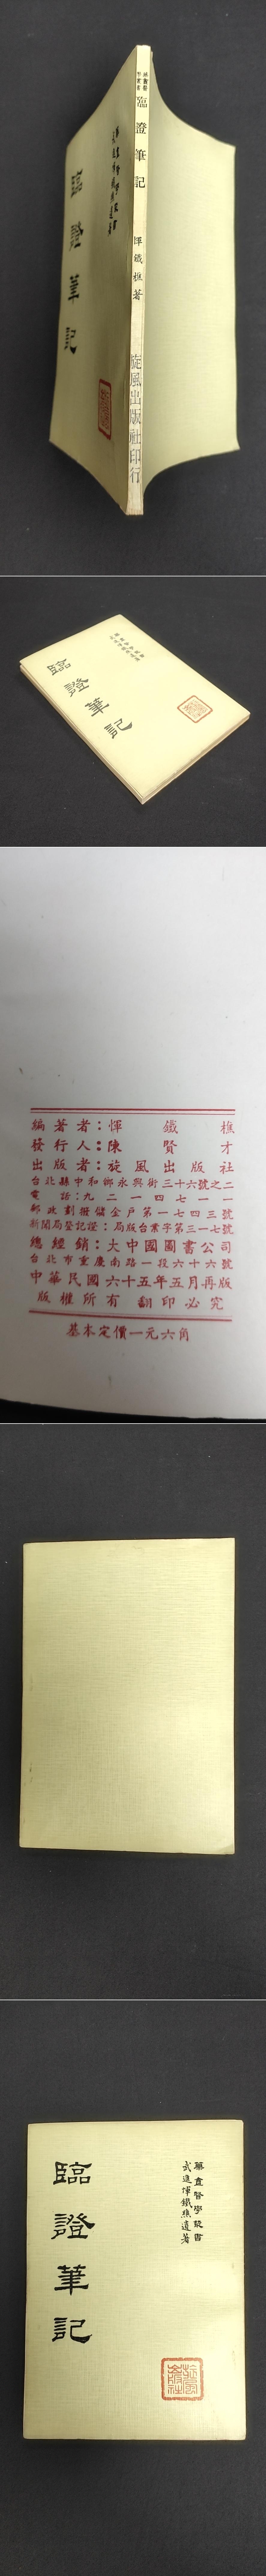 臨證筆記
惲鐵樵著
旋風出版社印行
臨證筆記
臨證筆記
編著者：惲鐵樵
發行人：陳賢才
出版者：旋風出版社
台北縣中和鄉永興街三十六號之二
電話：九二一四七一一
郵政劃撥儲金戶第一七四三號
新聞局登記證：局版台業字第三一七號
總經銷：大中國圖書公司
台北市重慶南路一段六十六號
中華民國六十五年五月再版
版權所有 翻印必究
基本定價一元六角
藥盦醫學叢書
武進惲鐵樵遺著
臨證筆記
旋風出版社